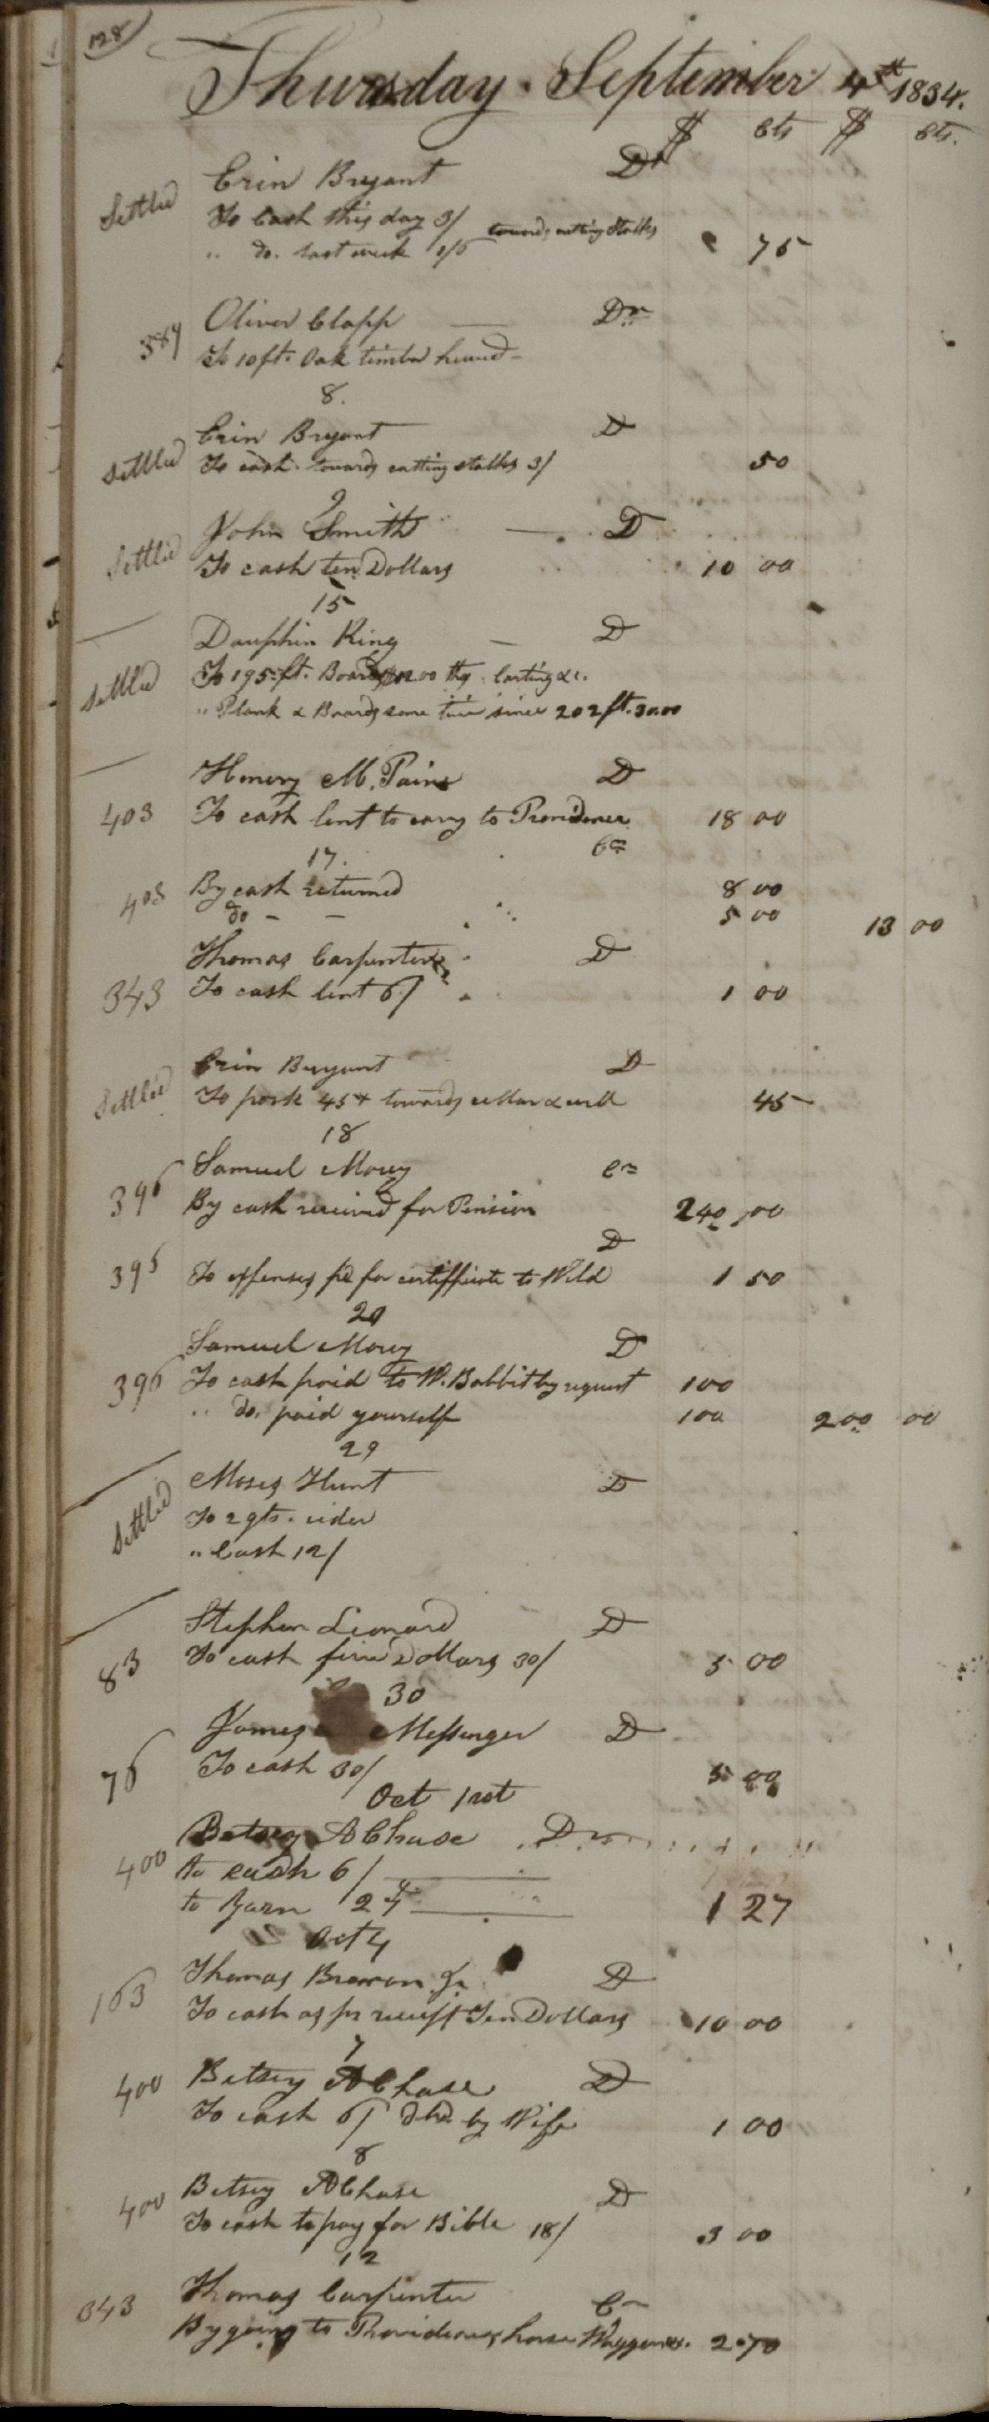 128
Thursday. September 4th 1834.
$ Cts $ Cts.
Settled Crin Bryant Dr
To Cash this day 3/ towards cutting Stalks
" do. last week 1/6 75
389 Oliver Clapp Dr
To 10 ft. Oak timber hewed
8.
Crin Bryant D
Settled To cash towards cutting stalks 3/ 50
9
John Smith D
Settled To cash ten Dollars 10 00
15
Dauphin King D
Settled To 195 ft. Boards 12.00 carting &c.
" Plank & Boards some time since 202 ft. 30.00
Henery M. Paine D
403 To cash lent to carry to Providence 18 00
17. Cr
403 By cash returned 8 00
do - - 5 00 13 00
Thomas Carpenter D
343 To cash lent 6/ 1 00
Crin Bryant D
Settled To pork 45 towards cellar & well 45
18
Samuel Mowry Cr
396 By cash received for Pension 240 00
D
395 To expenses pd for certifficate to Wild 1 50
20
Samuel Mowry D
396 To cash paid to W. Babbit by request 100
" do. paid yourself 100 200 00
29
Moses Hunt D
Settled To 2 qts. cider
" Cash 12/
Stephen Leonard D
83 To cash five Dollars 30/ 5 00
30
James Messenger D
76 To cash 30/ 5 00
Oct 1st
Betsey A Chase Dr
400 to cash 6/
to Yarn 1 27
Oct 4
Thomas Brown Jr D
163 To cash as pr receipt Ten Dollars 10 00
7
400 Betsey A Chase D
To cash 6/ dld by Wife 1 00
8
Betsey A Chase D
400 To cash to pay for Bible 18/ 3 00
12
Thomas Carpenter Cr
343 By going to Providence, horse Waggon &c. 2.70